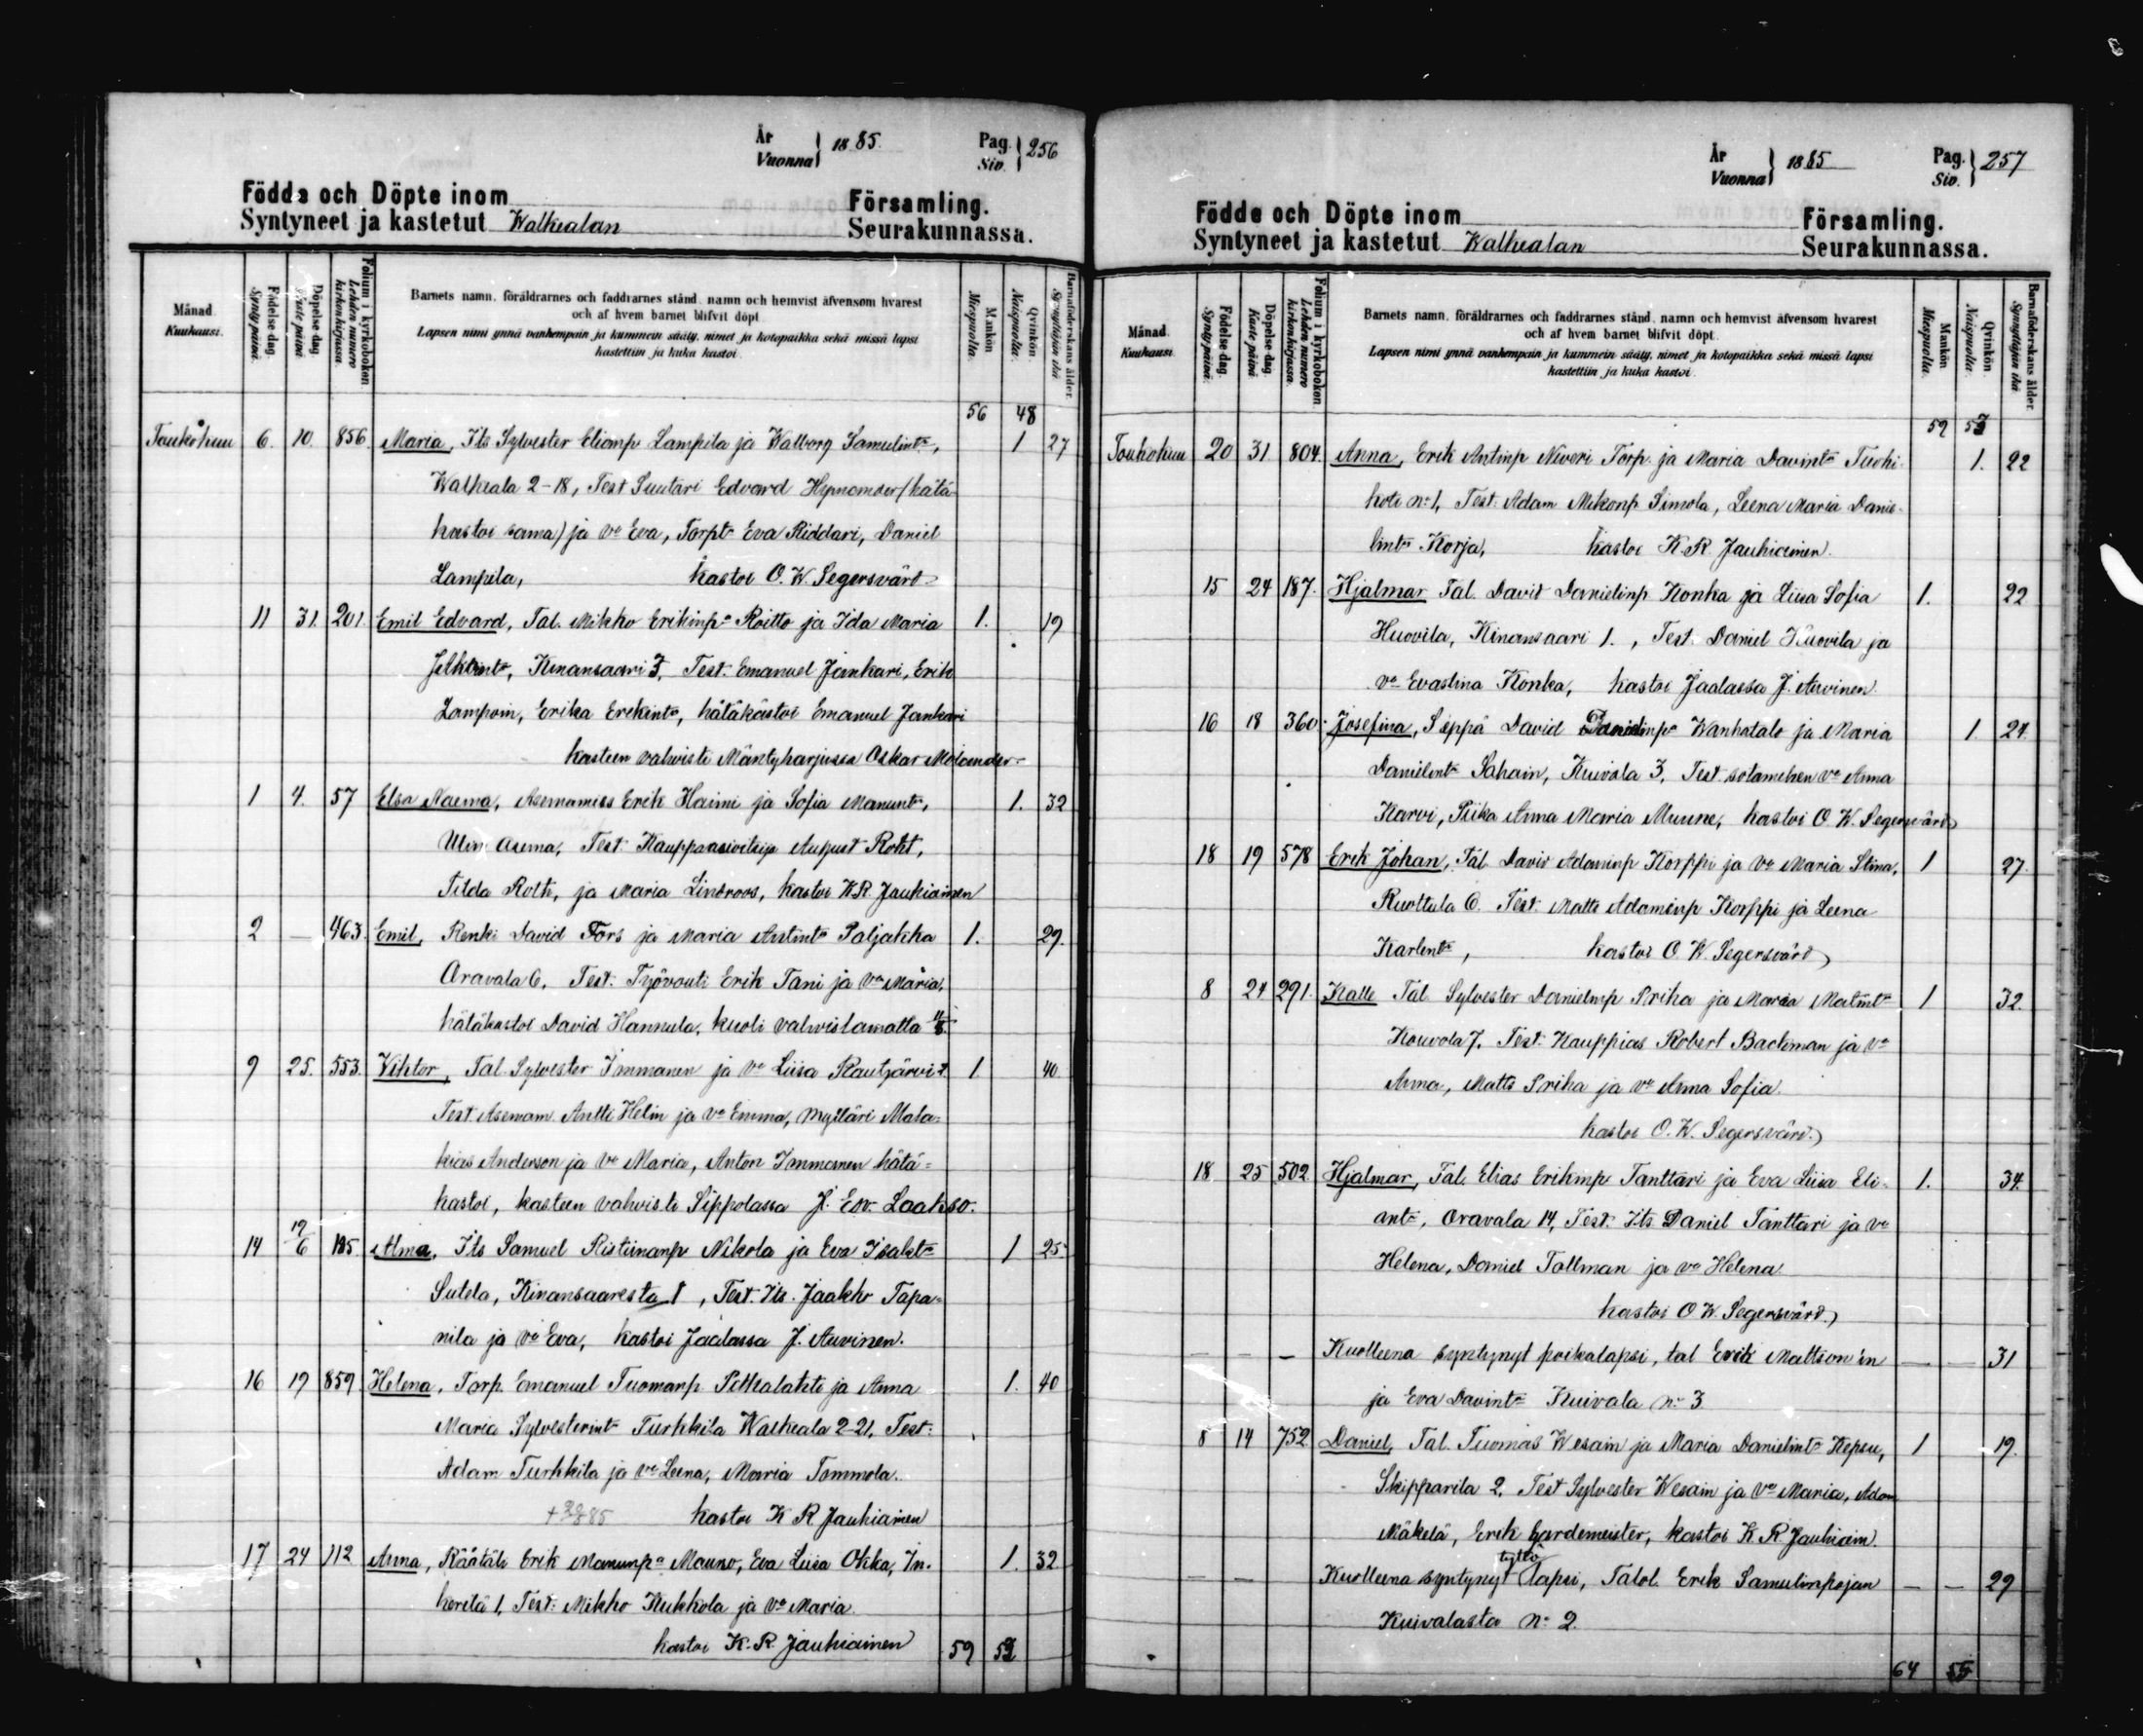 År
Vuonna } 1885.
Pag.
Siv. } 256
Födda och Döpte inom Församling.
Syntyneet ja kastetut Walkealan Seurakunnassa.
Månad. Kuukausi.
Födelse dag. Synty päivä.
Döpelse dag. Kaste päivä.
Folium i kyrkoboken Lehden numero kirkonkirjassa.
Barnets namn, föräldrarnes och faddrarnes stånd, namn och hemvist äfvensom hvarest
och af hvem barnet blifvit döpt.
Lapsen nimi ynnä vanhempain ja kummein sääty, nimet ja kotopaikka sekä missä lapsi
kastettiin ja kuka kastoi.
Mankön Miespuolia.
Qvinkön. Naispuolia.
Barnaföderskans ålder. Synnyttäjän ikä
56 48
Toukokuu 6. 10. 856. Maria, Its Sylvester Eliamp Lampila ja Walborg Samulint., 1 27
Walkeala 2-18, Test Suutari Edvard (hätä-
kastoi sama) ja vo Eva, Torpt Eva Riddari, Daniel
Lampila, kastoi O. W. Segersvärd
11 31. 201. Emil Edvard, Tal. Mikko Erikinpa Roitto ja Ida Maria 1. 19
Kinansaari 3, Test. Emanuel Jankari, Erik
Lampoin, Erika Erekint., hätäkastoi Emanuel Jankari
kasteen vahvisti Mäntyharjussa Oskar Molander
1 4. 57 Elsa Naema, Asemamies Erik Haimi ja Sofia Manunt., 1. 32
Utin asema, Test. August Roht,
Tilda Roth, ja Maria Lindroos, kastoi K.R. Jauhiainen
2 — 463. Emil, Renki David Fors ja Maria Antint. Paljakka 1. 29.
Oravala 6, Test. Työvouti Erik Tani ja Vo Maria,
hätäkastoi David Hannula, kuoli vahvistamatta 11/5.
9 25. 553. Viktor, Tal. Sylvester Immanen ja Vo Liisa Rautjärvi 2. 1 40
Test Asemam. Antti Helin ja Vo Emma, Mylläri Mala-
kias Anderson ja Vo Maria, Anton Immonen hätä-
kastoi, kasteen vahvisti Sippolassa J. Edv. Laakso.
14 19/6 185. Alma, Its Samuel Ristiinanp Nikola ja Eva Isakt. 1 25.
Sutela, Kinansaaresta 1, Test. Its. Jaakko Tapa-
nila ja Vo Eva, kastoi Jaalassa J. Auvinen.
16 19 859 Helena, Torp. Emanuel Tuomanp. Pitkalahti ja Anna 1. 40
Maria Sylvesterint. Turkkila Walkeala 2-21, Test:
Adam Turkkila ja Vo Leena, Maria Tommola.
kastoi K R Jauhiainen
17 24 112 Anna, Räätäli Erik Manunpa Mauno, Eva Liisa Okka, In- 1. 32
kerilä 1, Test. Mikko Kukkola ja Vo Maria
kastoi K. R. Jauhiainen 59 52
År
Vuonna } 1885
Pag.
Siv. } 257
Födde och Döpte inom Församling.
Syntyneet ja kastetut Walkealan Seurakunnassa.
Månad. Kuukausi.
Födelse dag. Synty päivä.
Döpelse dag. Kaste päivä.
Folium i kyrkoboken Lehden numero kirkonkirjassa.
Barnets namn, föräldrarnes och faddrarnes stånd, namn och hemvist äfvensom hvarest
och af hvem barnet blifvit döpt.
Lapsen nimi ynnä vanhempain ja kummein sääty, nimet ja kotopaikka sekä missä lapsi
kastettiin ja kuka kastoi.
Mankön Miespuolia.
Qvinkön. Naispuolia.
Barnaföderskans ålder. Synnyttäjän ikä
59 52
Toukokuu 20 31 804. Anna, Erik Antinp Niveri Torp. ja Maria Davint. Tuohi- 1. 22
koti No 1, Test. Adam Mikonp Simola, Leena Maria Danie-
lint. Korja, kastoi K. R. Jauhiainen.
15 24 187. Hjalmar Tal. David Danielinp Konka ja Liisa Sofia 1. 22
Huovila, Kinansaari 1., Test. Daniel Huovila ja
Vo Evastina Konka, kastoi Jaalassa J. Auvinen.
16 18 360. Josefina, Seppä David Wanhatalo ja Maria 1. 24
Danielint. Sahain, Kuivala 3, Test. sotamiehen vo Anna
Karvi, Piika Anna Maria Muune, kastoi O. W. Segersvärd
18 19 578 Erik Johan, Tal. David Adaminp Korppi ja Vo Maria Stina, 1 27.
Ruottula 6. Test. Matts Adaminp Korppi ja Leena
Karlent., kastoi O W. Segersvärd
8 24 291. Kalle Tal. Sylvester Danielinp Priha ja Maria Matint. 1 32.
Kouvola 7, Test. Kauppias Robert Backman ja Vo
Anna, Matts Priha ja Vo Anna Sofia.
kastoi O. W. Segersvärd.
18 25 502 Hjalmar, Tal. Elias Erikinp Tanttari ja Eva Liisa Eli- 1. 34.
ant., Oravala 14, Test. Its Daniel Tanttari ja Vo
Helena, Daniel Tallman ja Vo Helena.
kastoi O W. Segersvärd.
— — — Kuolleena syntynyt poikalapsi, tal Erik Mattson'in — — 31
ja Eva Davint. Kuivala No 3
8 14 752 Daniel, Tal. Tuomas Wesain ja Maria Danielint. Kepsu, 1 19.
Skipparila 2, Test Sylvester Wesain ja Vo Maria, Adam
Mäkelä, Erik Gardemeister, kastoi K. R. Jauhiain.
tyttö
— — Kuolleena syntynyt lapsi, Talol. Erik Samulinpojan — — 29
Kuivalasta No 2.
64 55